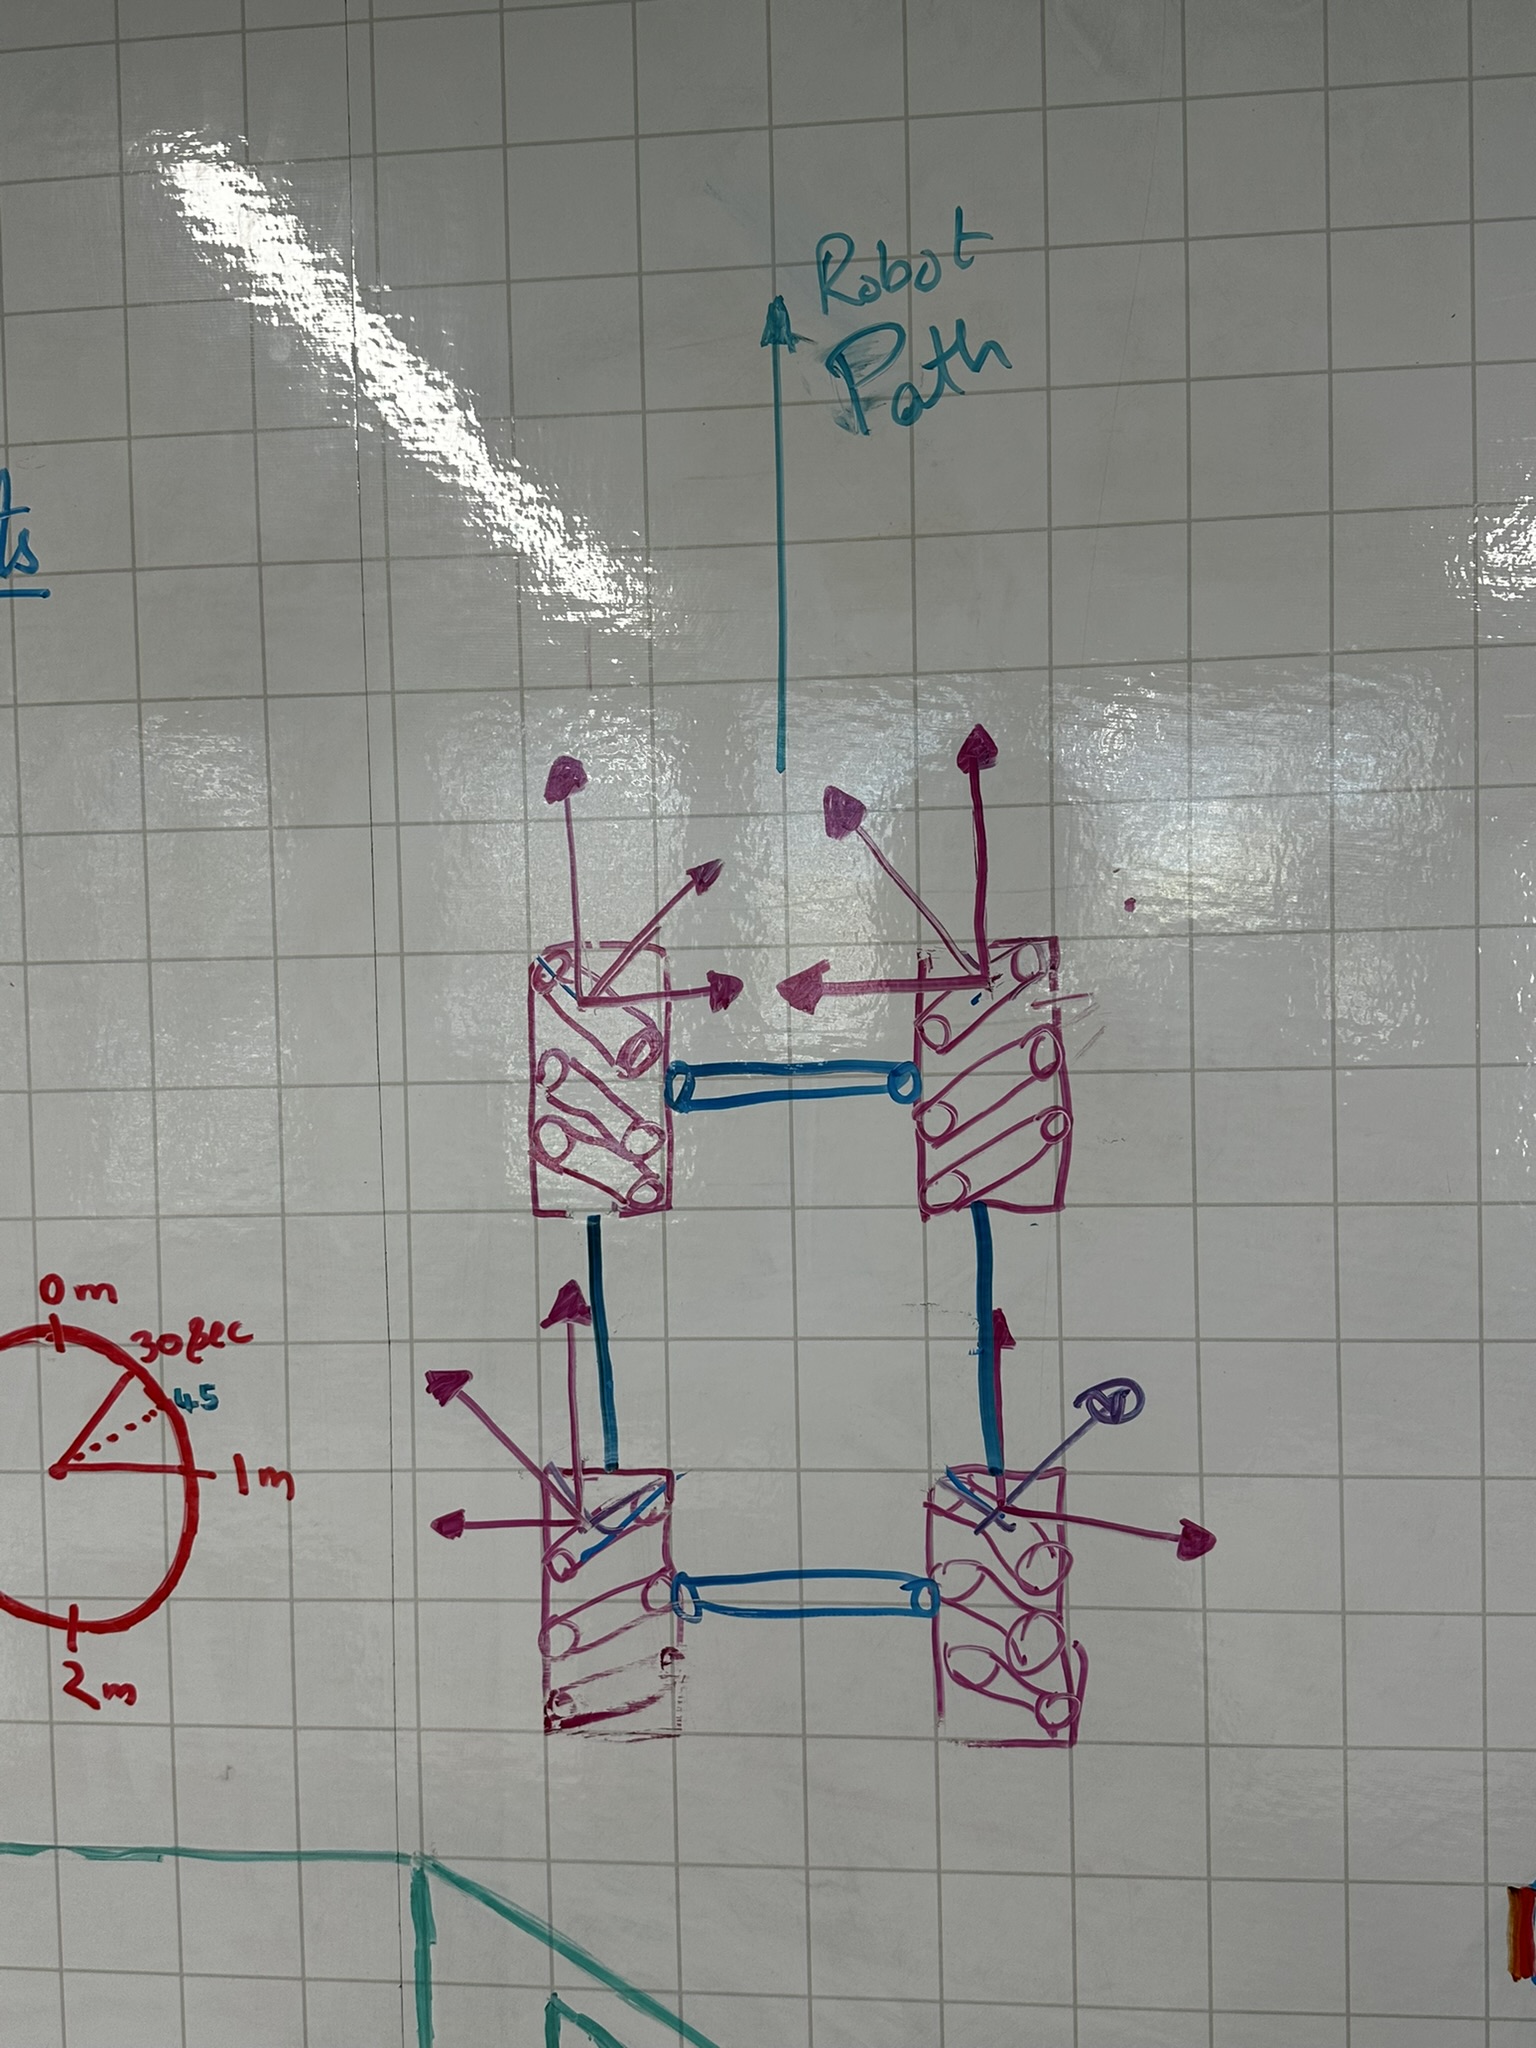 Robot
Path
0m
30sec
45
1m
2m